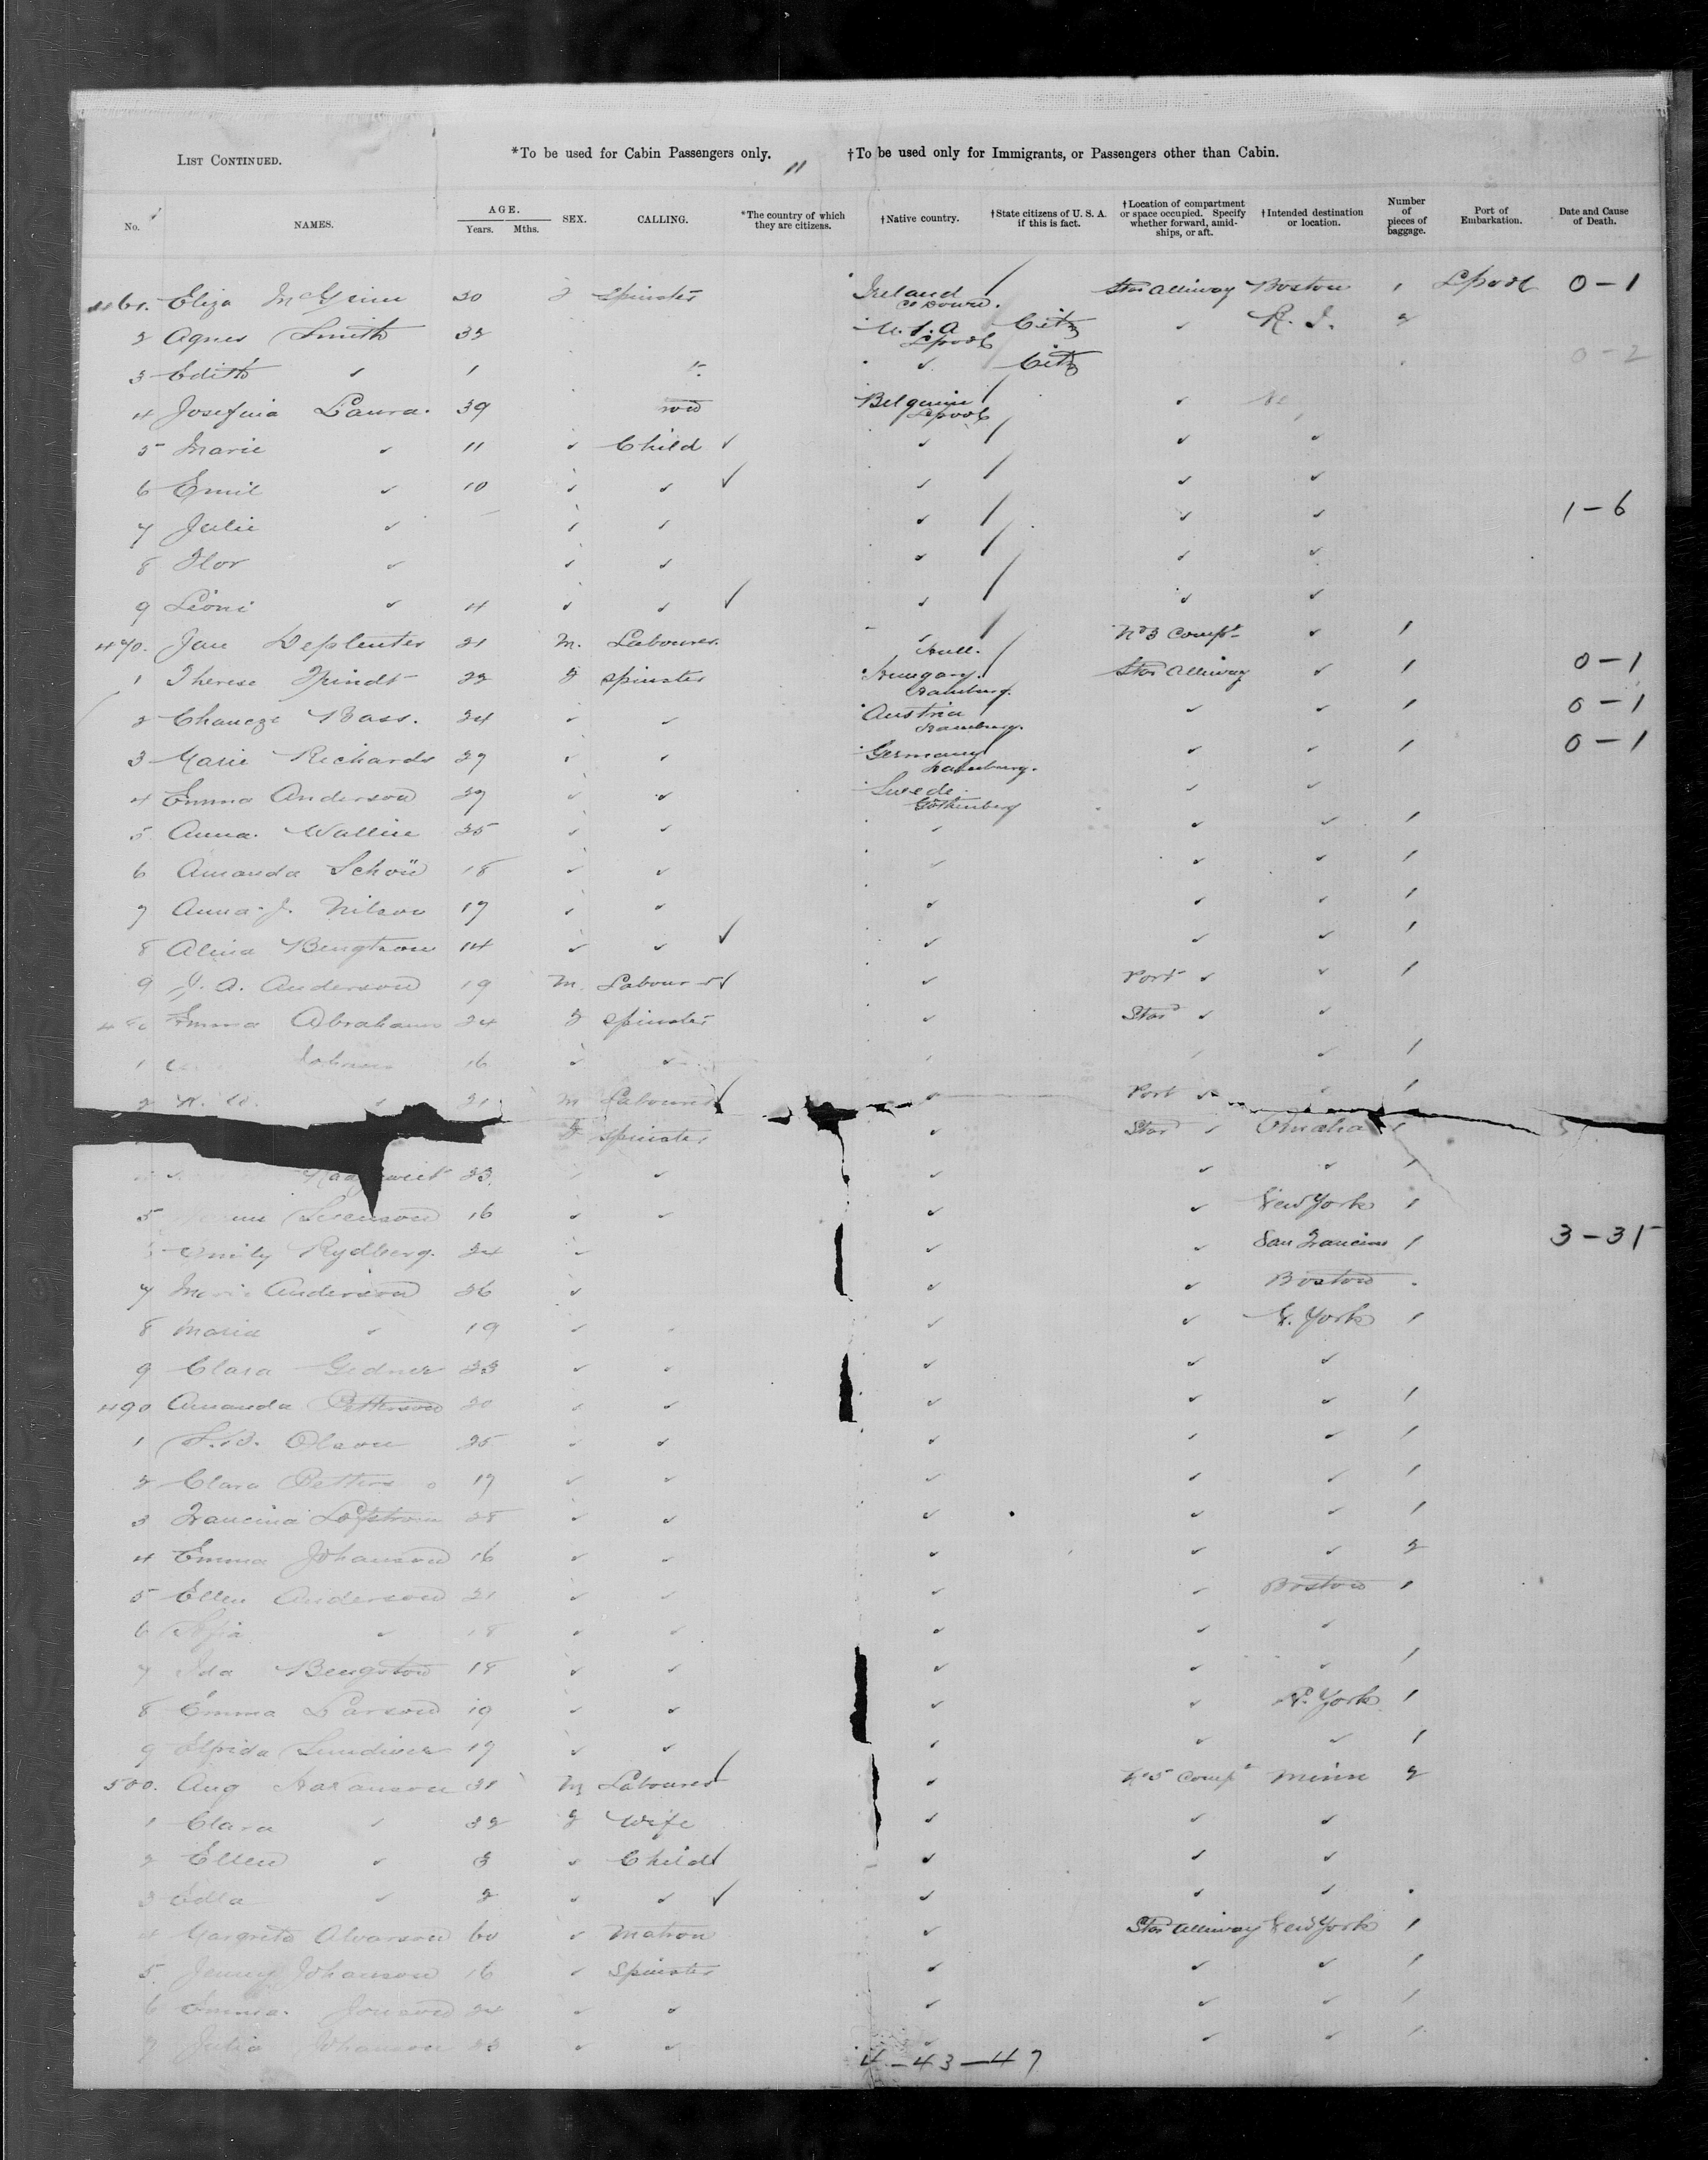 LIST CONTINUED. *To be used for Cabin Passengers only. 11 †To be used only for Immigrants, or Passengers other than Cabin.
No. NAMES. AGE. Years. Mths. SEX. CALLING. *The country of which they are citizens. †Native country. †State citizens of U. S. A. if this is fact. †Location of compartment or space occupied. Specify whether forward, amid-ships, or aft. †Intended destination or location. Number of pieces of baggage. Port of Embarkation. Date and Cause of Death.
461. Eliza McGinn 30 F Spinster Ireland Co Down. / Star Alliway Boston 1 Lpool 0-1
2 Agnes Smith 32 U.S.A Lpool Citz ✓ R. I. 2
3 Edith ✓ 1 ✓ Citz 0-2
4 Josefina Laura. 39 Belguim Lpool / ✓
5 Marie ✓ 11 ✓ Child ✓ ✓ / ✓ ✓
6 Emil ✓ 10 ✓ ✓ ✓ ✓ / ✓ ✓
7 Julie ✓ ✓ ✓ ✓ / ✓ ✓ 1-6
8 Flor ✓ ✓ ✓ ✓ / ✓ ✓
9 Lioni ✓ 4 ✓ ✓ ✓ ✓ / ✓ ✓
470. Jan Deplenter 21 M. Labourer ✓ Hull. / No 3 Compt ✓ 1
1 Therese 22 F Spinster Hungary. Hamburg. Star Alliway ✓ 1 0-1
2 Bass. 24 ✓ ✓ Austria Hamburg. ✓ ✓ 1 0-1
3 Marie Richards 27 ✓ ✓ Germany Hamburg. ✓ ✓ 1 0-1
4 Emma Anderson 27 ✓ ✓ Swede. Gothenberg ✓ ✓
5 Anna. Wallin 25 ✓ ✓ ✓ ✓ ✓ 1
6 Amanda Schön 18 ✓ ✓ ✓ ✓ ✓ 1
7 Anna J. Nilson 17 ✓ ✓ ✓ ✓ ✓ 1
8 Alina Bengtson 14 ✓ ✓ ✓ ✓ ✓ ✓ 1
9 J. A. Anderson 19 M. Labourer ✓ ✓ Port ✓ ✓ 1
480 Emma Abrahams 24 F Spinster ✓ Star ✓ ✓
1 16 ✓ ✓ ✓ 1
2 ✓ 21 M Labourer ✓ ✓ Port ✓ ✓ 1
F Spinster ✓ Star ✓ Omaha 1
23. ✓ ✓ ✓ ✓ 1
5 Svenson 16 ✓ ✓ ✓ ✓ New York 1
6 Emily Rydberg. 24 ✓ ✓ ✓ San Francisco 1 3-31
7 Anderson 26 ✓ ✓ ✓ Boston
8 Maria ✓ 19 ✓ ✓ ✓ N. York 1
9 Clara Gedner 23 ✓ ✓ ✓ ✓ ✓
490 Amanda Petterson 20 ✓ ✓ ✓ ✓ ✓ 1
1 Olson 25 ✓ ✓ ✓ ✓ ✓ 1
2 Clara Petters 17 ✓ ✓ ✓ ✓ 1
3 Francina Lofstrom 28 ✓ ✓ ✓ ✓ ✓ 1
4 Emma Johanson 16 ✓ ✓ ✓ ✓ ✓ 2
5 Ellen Anderson 21 ✓ ✓ ✓ ✓ Boston 1
6 Sofia ✓ 18 ✓ ✓ ✓ ✓ ✓
7 Ida Bengston 18 ✓ ✓ ✓ ✓ ✓ 1
8 Emma Larson 19 ✓ ✓ ✓ ✓ N. York 1
9 Elfrida 19 ✓ ✓ ✓ ✓ ✓ 1
500. Aug 31 M Labourer ✓ ✓ No 5 Compt Minn 2
1 Clara ✓ 32 F Wife ✓ ✓ ✓
2 Ellen ✓ 3 ✓ Child ✓ ✓ ✓ ✓
3 Edla ✓ 2 ✓ ✓ ✓ ✓ ✓ ✓
4 Margreta Alvarson 60 ✓ Matron ✓ Star Alliway New York 1
5 Jenny Johanson 16 ✓ Spinster ✓ ✓ ✓ 1
6 Emma. Jonson 24 ✓ ✓ ✓ ✓ ✓ 1
7 Julia Johanson 23 ✓ ✓ ✓ ✓ ✓ 1
4-43-47